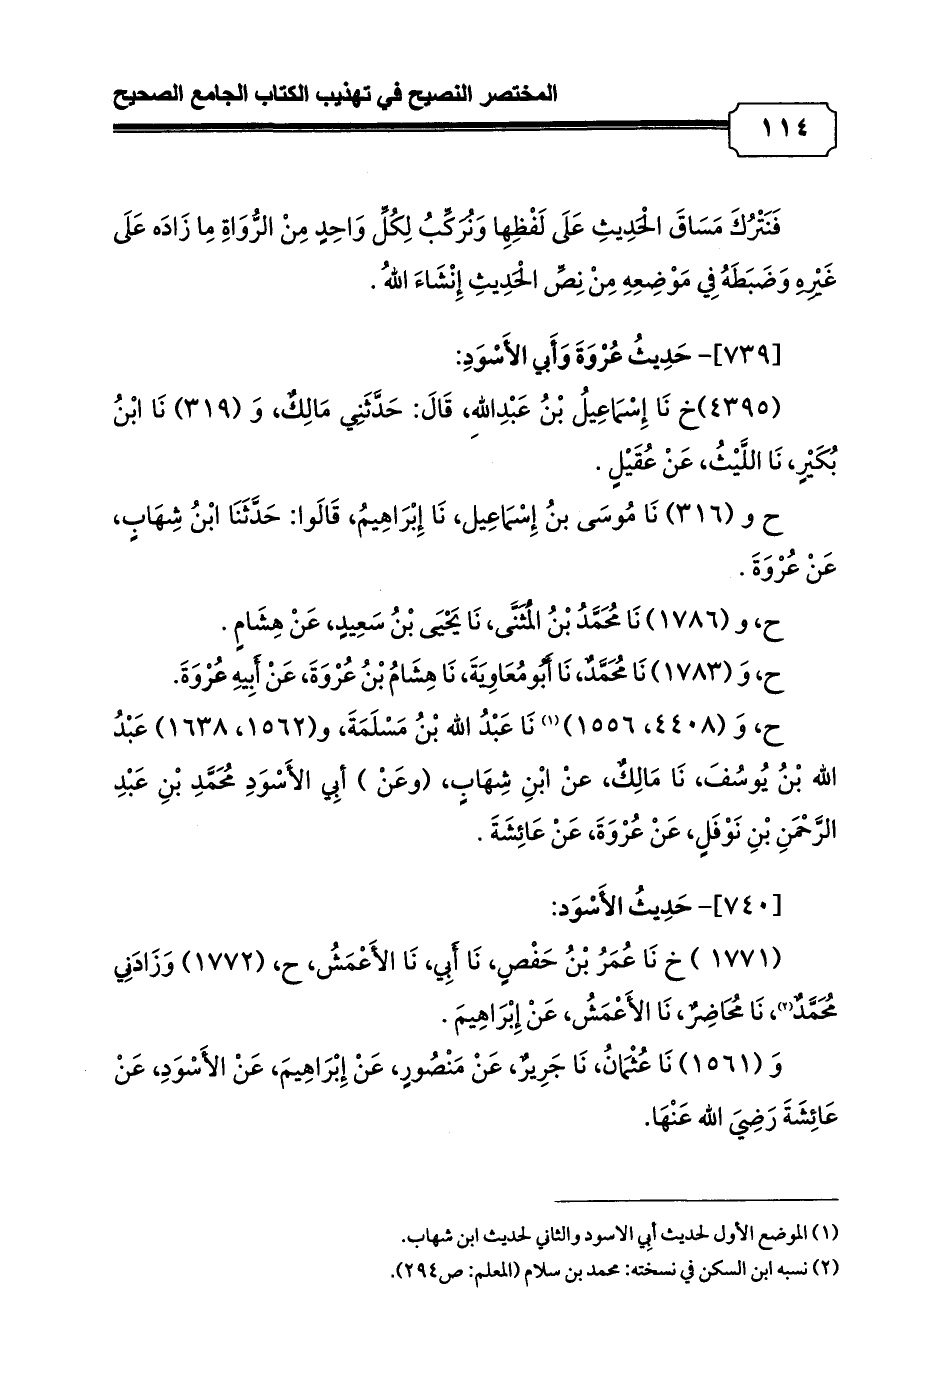 المختصر النصيح في تهذيب الكتاب الجامع الصحيح
١١٤
فَنَتْرُكَ مَسَاقَ الْحَدِيثِ عَلَى لَفْظِهِا وَنُرَكِّبُ لِكُلِّ وَاحِدٍ مِنْ الرُّوَاةِ مِا زَادَه عَلَى
غَيْرِهِ وَضَبَطَهُ فِي مَوْضِعِهِ مِنْ نِصِّ الحَدِيثِ إِنْشَاءَ اللهُ .
[٧٣٩]- حَدِيثُ عُرْوَةَ وَأَبي الأَسْوَدِ:
(٤٣٩٥)خ نَا إِسْمَاعِيلُ بْنُ عَبْدِالله، قَالَ: حَدَّثَنِي مَالِكٌ، وَ (٣١٩) نَا ابْنُ
بُكَيْرٍ، نَا اللَّيْثُ، عَنْ عُقَيْلٍ .
ح و (٣١٦) نَا مُوسَى بنُ إِسْمَاعِيل، نَا إِبْرَاهِيمُ، قَالَوا: حَدَّثَنَا ابْنُ شِهَابٍ،
عَنْ عُرْوَةَ .
ح، و (١٧٨٦) نَا مُحَمَّدُ بْنُ الْمُثَنَّى، نَا يَحْيَى بْنُ سَعِيدٍ، عَنْ هِشَامٍ .
ح، وَ (١٧٨٣) نَا مُحَمَّدٌ، نَا أَبُو مُعَاوِيَةَ، نَا هِشَامُ بْنُ عُرْوَةَ، عَنْ أَبِيهِ عُرْوَةَ.
ح، وَ (٤٤٠٨، ١٥٥٦)(١) نَا عَبْدُ الله بْنُ مَسْلَمَةَ، و(١٥٦٢، ١٦٣٨) عَبْدُ
الله بْنُ يُوسُفَ، نَا مَالِكٌ، عنْ ابْنِ شِهَابٍ، (وعَنْ ) أَبِي الأَسْوَدِ مُحَمَّدِ بْنِ عَبْدِ
الرَّحْمَنِ بْنِ نَوْفَلٍ، عَنْ عُرْوَةَ، عَنْ عَائِشَةَ .
[٧٤٠]- حَدِيثُ الأَسْوَد:
(١٧٧١ ) خ نَا عُمَرُ بْنُ حَفْصٍ، نَا أَبِي، نَا الأَعْمَشُ، ح، (١٧٧٢) وَزَادَنِي
مُحَمَّدٌ(٢)، نَا مُحَاضِرٌ، نَا الأَعْمَشُ، عَنْ إِبْرَاهِيمَ .
وَ (١٥٦١) نَا عُثْمَانُ، نَا جَرِيرٌ، عَنْ مَنْصُورٍ، عَنْ إِبْرَاهِيمَ، عَنْ الأَسْوَدِ، عَنْ
عَائِشَةَ رَضِيَ الله عَنْهَا.
(١) الموضع الأول لحديث أبي الاسود والثاني لحديث ابن شهاب.
(٢) نسبه ابن السكن في نسخته: محمد بن سلام (المعلم: ص٢٩٤).